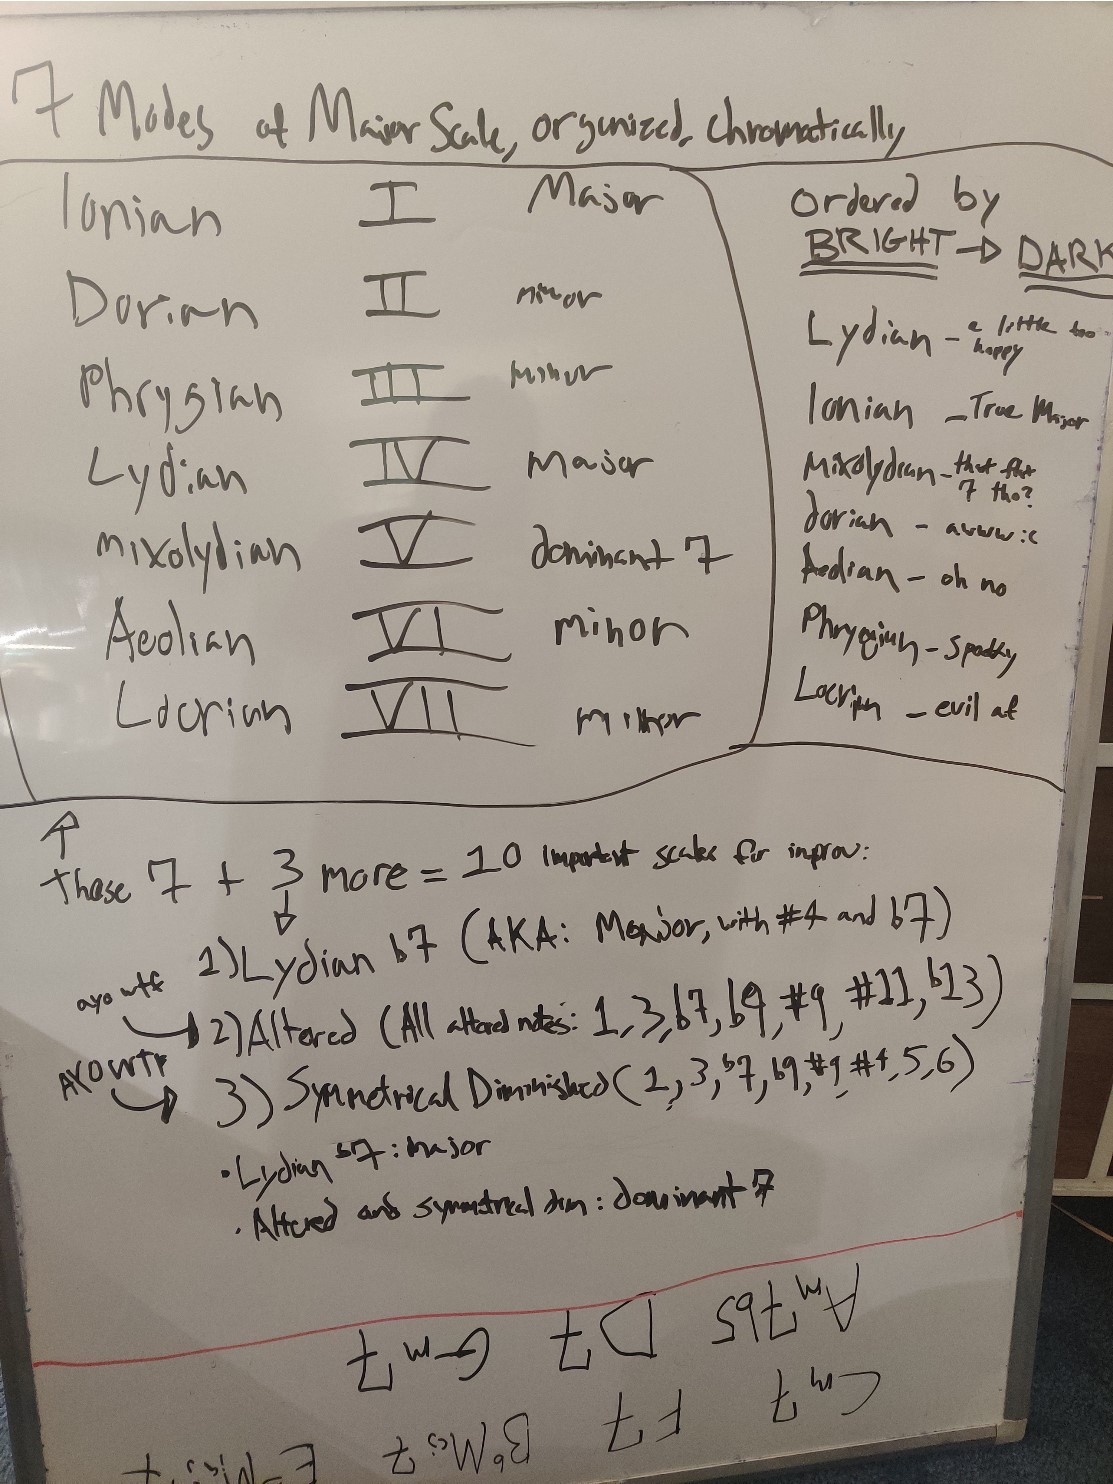 7 Modes of Major Scale, organized chromatically
Ionian I Major
Dorian II minor
Phrygian III minor
Lydian IV Major
mixolydian V dominant 7
Aeolian VI minor
Locrian VII minor
Ordered by
BRIGHT → DARK
Lydian - a little too
happy
Ionian - True Major
Mixolydian - that flat
7 tho?
dorian - awww :c
Aeolian - oh no
Phrygian - spooky
Locrian - evil af
↑
these 7 + 3 more = 10 important scales for improv:
1) Lydian b7 (AKA: Major, with #4 and b7)
ayo wtf
2) Altered (All altered notes: 1, 3, b7, b9, #9, #11, b13)
AYO WTF
3) Symmetrical Diminished (1, 3, b7, b9, #9, #4, 5, 6)
• Lydian b7: major
• Altered and symmetrical dim: dominant 7
Am7b5 D7 Gm7
Cm7 F7 BbMaj7